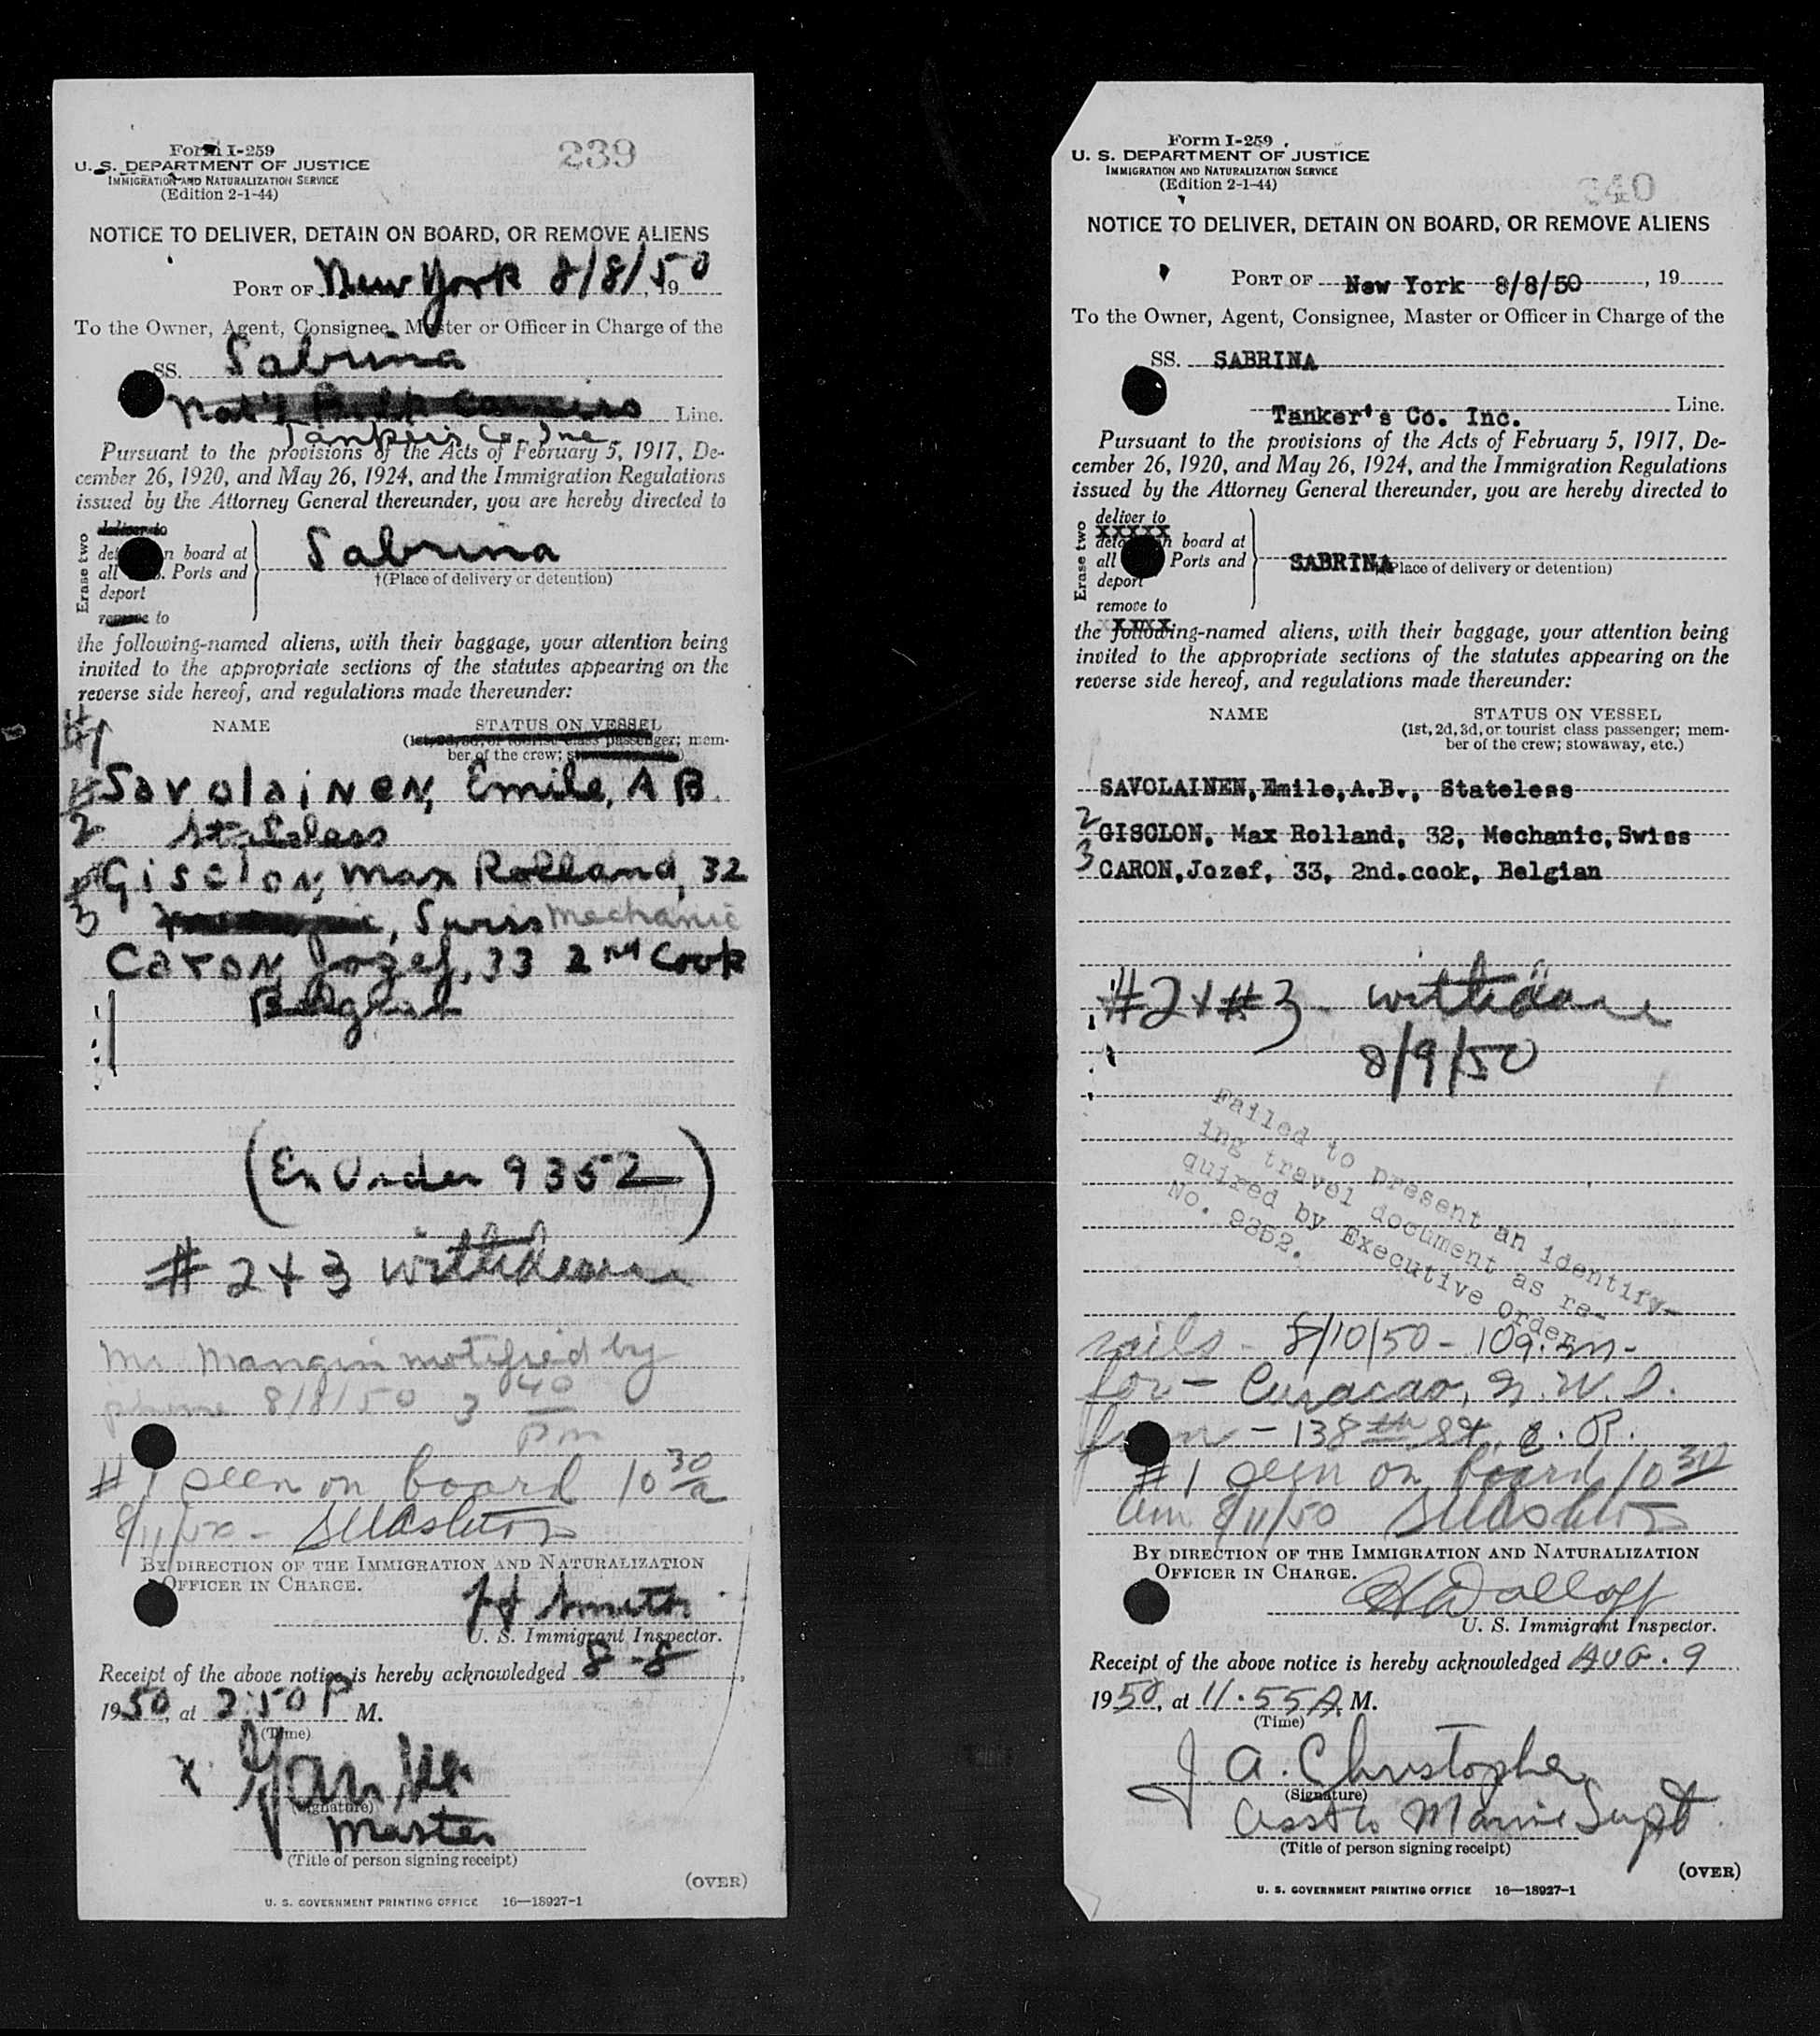 Form I-259
U. S. DEPARTMENT OF JUSTICE
IMMIGRATION AND NATURALIZATION SERVICE
(Edition 2-1-44)
239
NOTICE TO DELIVER, DETAIN ON BOARD, OR REMOVE ALIENS
PORT OF New York 8/8/50, 19
To the Owner, Agent, Consignee, Master or Officer in Charge of the
SS. Sabrina
Nat'l Bulk Carriers Line.
Tankers Co Inc
Pursuant to the provisions of the Acts of February 5, 1917, De-
cember 26, 1920, and May 26, 1924, and the Immigration Regulations
issued by the Attorney General thereunder, you are hereby directed to
Erase two
deliver to
n board at
all Ports and
deport
remove to
Sabrina
†(Place of delivery or detention)
the following-named aliens, with their baggage, your attention being
invited to the appropriate sections of the statutes appearing on the
reverse side hereof, and regulations made thereunder:
NAME STATUS ON VESSEL
(1st, 2d, 3d, or tourist class passenger; mem-
ber of the crew; stowaway, etc.)
#1
Savolainen, Emile, AB
2 Stateless
Gisclon, Max Rolland, 32
3 , Swiss Mechanic
Caron, Jozef, 33 2nd Cook
Belgian
(Ex Order 9352)
# 2 + 3 withdrawn
Mr. Mangin notified by
phone 8/8/50 3 40
Pm
# 1 seen on board 10 30 a
8/11/50 -
BY DIRECTION OF THE IMMIGRATION AND NATURALIZATION
OFFICER IN CHARGE.
Smith
U. S. Immigrant Inspector.
Receipt of the above notice is hereby acknowledged 8-8,
1950, at 3:50 P M.
(Time)
x
(Signature)
Master
(Title of person signing receipt)
(OVER)
U. S. GOVERNMENT PRINTING OFFICE 16—18927-1
Form I-259
U. S. DEPARTMENT OF JUSTICE
IMMIGRATION AND NATURALIZATION SERVICE
(Edition 2-1-44)
240
NOTICE TO DELIVER, DETAIN ON BOARD, OR REMOVE ALIENS
PORT OF New York 8/8/50, 19
To the Owner, Agent, Consignee, Master or Officer in Charge of the
SS. SABRINA
Line.
Tanker's Co. Inc.
Pursuant to the provisions of the Acts of February 5, 1917, De-
cember 26, 1920, and May 26, 1924, and the Immigration Regulations
issued by the Attorney General thereunder, you are hereby directed to
Erase two
deliver to
XXXXX
board at
all Ports and
deport
remove to
XXXXX
SABRINA
(Place of delivery or detention)
the following-named aliens, with their baggage, your attention being
invited to the appropriate sections of the statutes appearing on the
reverse side hereof, and regulations made thereunder:
NAME STATUS ON VESSEL
(1st, 2d, 3d, or tourist class passenger; mem-
ber of the crew; stowaway, etc.)
SAVOLAINEN, Emile, A.B., Stateless
2 GISCLON, Max Rolland, 32, Mechanic, Swiss
3 CARON, Jozef, 33, 2nd. cook, Belgian
#2 + #3 - withdrawn
8/9/50
Failed to present an identify-
ing travel document as re-
quired by Executive Order
No. 9352.
sails - 8/10/50 - 10 a.m.
for - Curacao, N.W.I.
from - 138th St, E.R.
#1 seen on board 10 30
am 8/11/50
BY DIRECTION OF THE IMMIGRATION AND NATURALIZATION
OFFICER IN CHARGE.
U. S. Immigrant Inspector.
Receipt of the above notice is hereby acknowledged AUG. 9
1950, at 11:55 A. M.
(Time)
J A. Christopher
(Signature)
Asst to Marine Supt
(Title of person signing receipt)
(OVER)
U. S. GOVERNMENT PRINTING OFFICE 16—18927-1